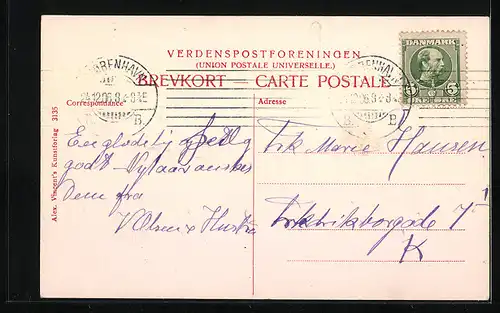 VERDENSPOSTFORENINGEN
(UNION POSTALE UNIVERSELLE.)
BREVKORT — CARTE POSTALE
DANMARK
5 5
KØBENHAVN
24.12.06.8
B.
KØBENHAVN
B.
Correspondance
Adresse
Alex. Vincent's Kunstforlag 3135
En glædelig Jul og
godt Nytaar ønskes
Dem fra
V. Olsen & Hustru
Frk Marie Hansen
Frederiksborgade 7
K